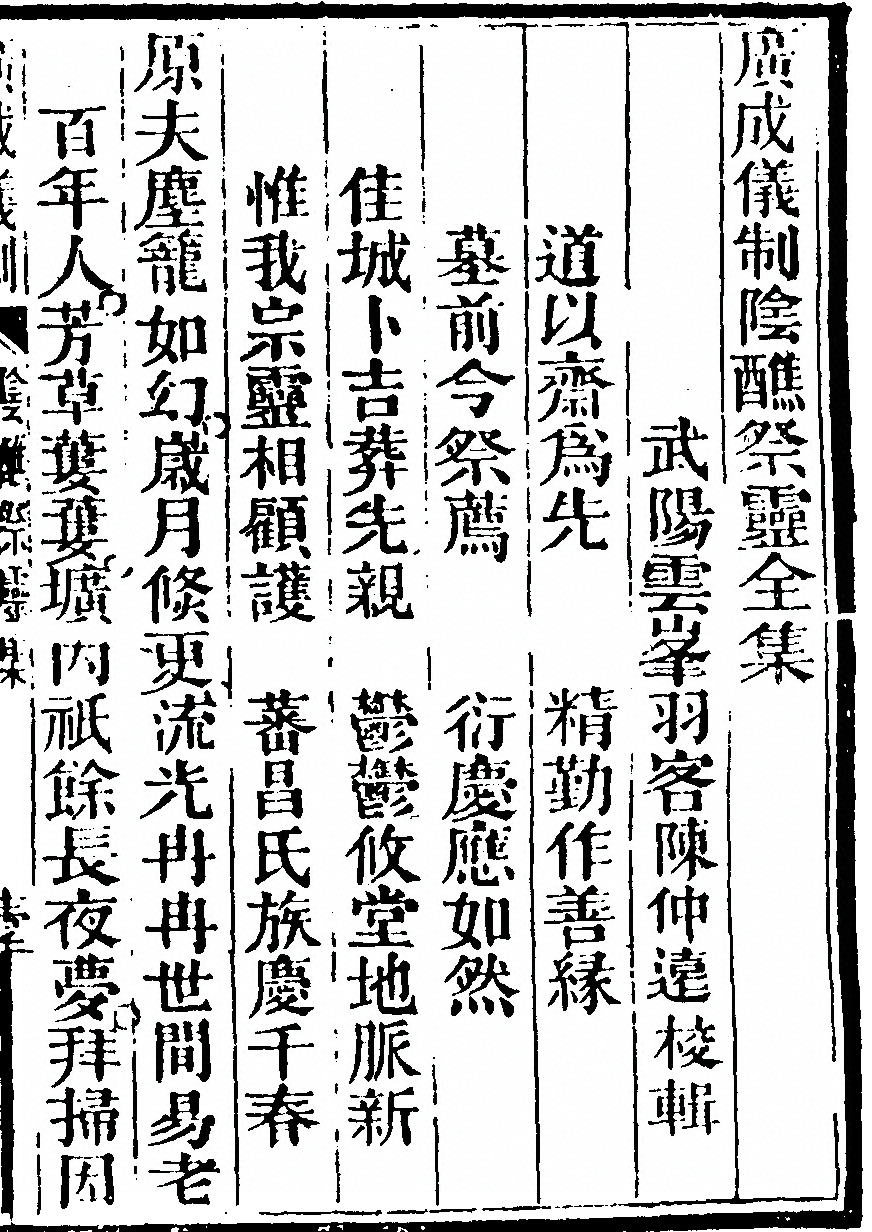 廣成儀制陰醮祭靈全集
武陽雲峯羽客陳仲遠校輯
道以齋爲先　精勤作善緣
墓前今祭薦　衍慶應如然
佳城卜吉葬先親　鬱鬱攸堂地脈新
惟我宗靈相顧護　蕃昌氏族慶千春
原夫塵籠如幻歲月倐更流光冉冉世間易老
百年人芳草萋萋壙內祇餘長夜夢拜掃因